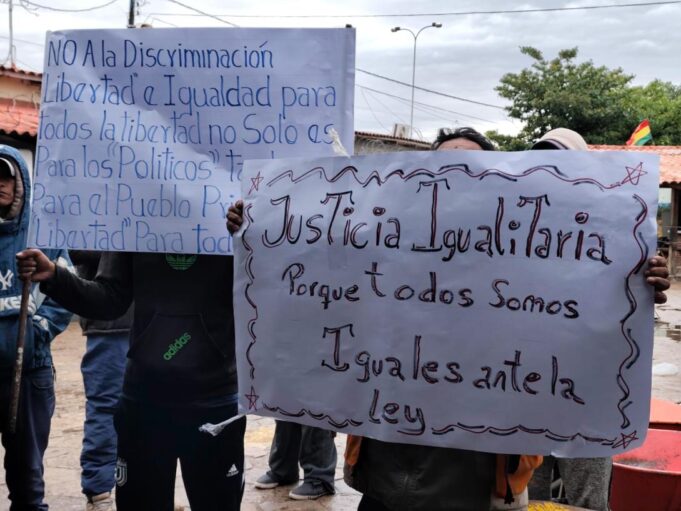 NO A la DiscRiminación
"Libertad" e Igualdad para
todos la libertad no Solo es
Para los "Politicos"
Para el Pueblo
Libertad" Para
JusTicia IgualiTaria
Porque todos Somos
Iguales ante la
ley
adidas
NY